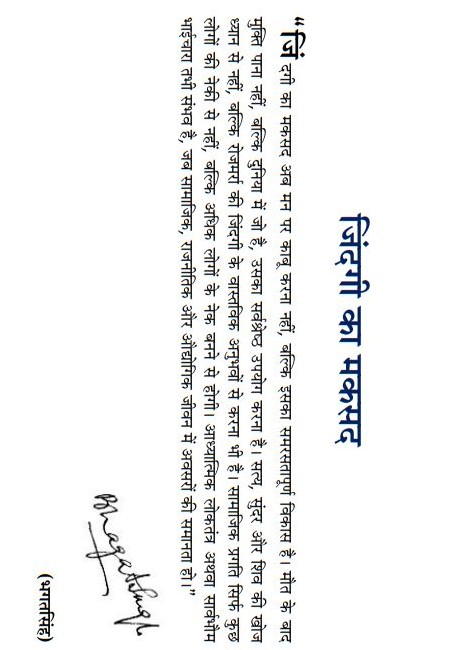 जिंदगी का मकसद
“जिंदगी का मकसद अब मन पर काबू करना नहीं, बल्कि इसका समरसतापूर्ण विकास है। मौत के बाद
मुक्ति पाना नहीं, बल्कि दुनिया में जो है, उसका सर्वश्रेष्ठ उपयोग करना है। सत्य, सुंदर और शिव की खोज
ध्यान से नहीं, बल्कि रोजमर्रा की जिंदगी के वास्तविक अनुभवों से करना भी है। सामाजिक प्रगति सिर्फ कुछ
लोगों की नेकी से नहीं, बल्कि अधिक लोगों के नेक बनने से होगी। आध्यात्मिक लोकतंत्र अथवा सार्वभौम
भाईचारा तभी संभव है, जब सामाजिक, राजनीतिक और औद्योगिक जीवन में अवसरों की समानता हो।”
Bhagat Singh
(भगतसिंह)